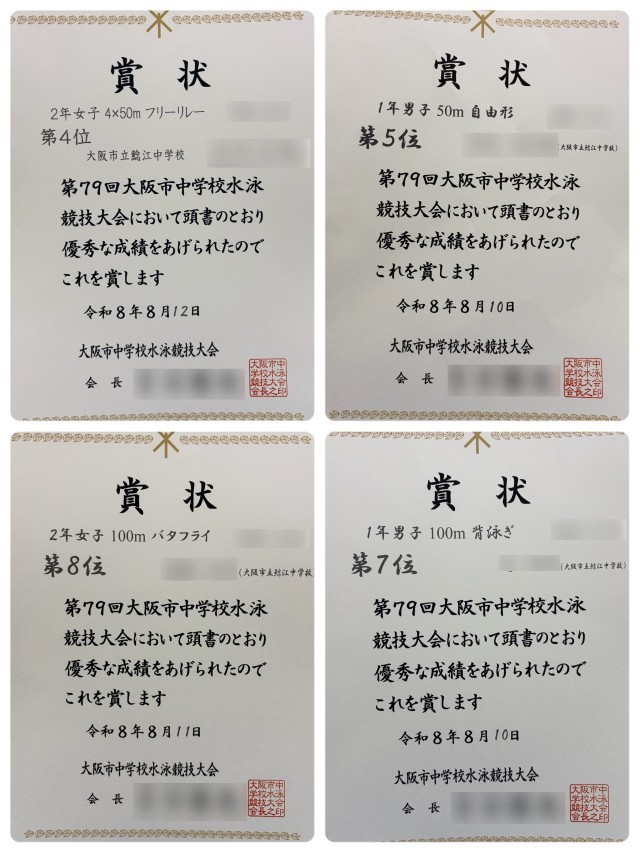 賞状
2年女子 4×50m フリーリレー
第4位
大阪市立鯰江中学校
第79回大阪市中学校水泳
競技大会において頭書のとおり
優秀な成績をあげられたので
これを賞します
令和8年8月12日
大阪市中学校水泳競技大会
会長
大阪市中
学校水泳
競技大会
会長之印
賞状
1年男子 50m 自由形
第5位
(大阪市立鯰江中学校)
第79回大阪市中学校水泳
競技大会において頭書のとおり
優秀な成績をあげられたので
これを賞します
令和8年8月10日
大阪市中学校水泳競技大会
会長
大阪市中
学校水泳
競技大会
会長之印
賞状
2年女子 100m バタフライ
第8位
(大阪市立鯰江中学校)
第79回大阪市中学校水泳
競技大会において頭書のとおり
優秀な成績をあげられたので
これを賞します
令和8年8月11日
大阪市中学校水泳競技大会
会長
大阪市中
学校水泳
競技大会
会長之印
賞状
1年男子 100m 背泳ぎ
第7位
(大阪市立鯰江中学校)
第79回大阪市中学校水泳
競技大会において頭書のとおり
優秀な成績をあげられたので
これを賞します
令和8年8月10日
大阪市中学校水泳競技大会
会長
大阪市中
学校水泳
競技大会
会長之印